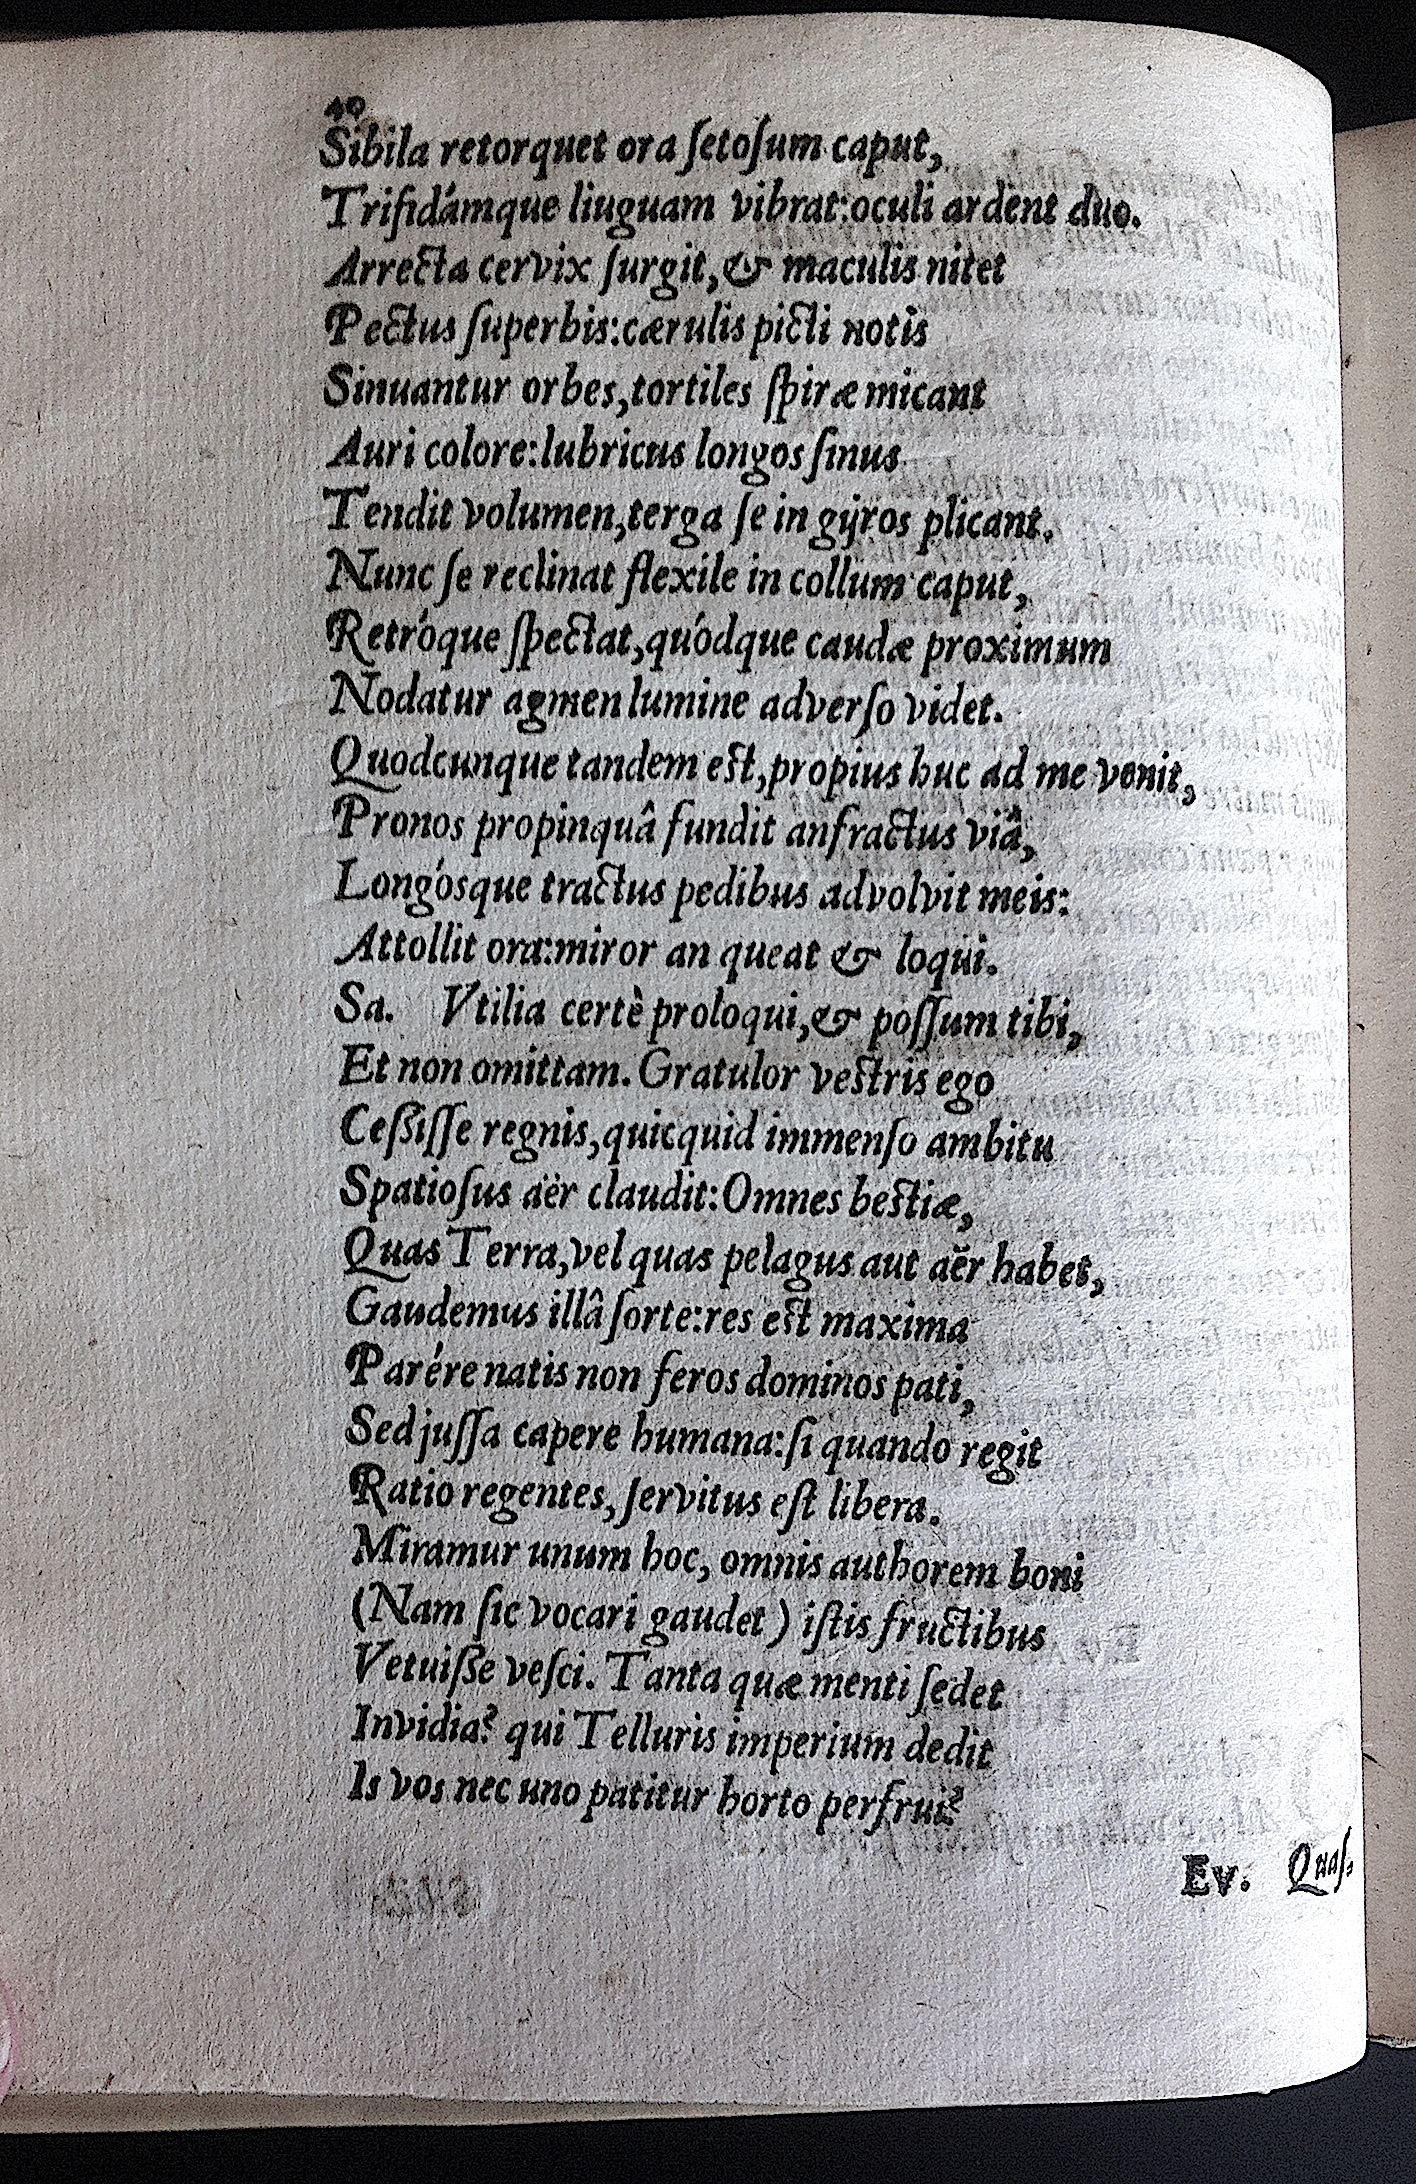 40
Sibila retorquet ora ſetoſum caput,
Trifidámque liuguam vibrat:oculi ardent duo.
Arrecta cervix ſurgit,& maculis nitet
Pectus ſuperbis:cærulis picti notis
Sinuantur orbes,tortiles ſpiræ micant
Auri colore:lubricus longos ſinus
Tendit volumen,terga ſe in gyros plicant.
Nunc ſe reclinat flexile in collum caput,
Retróque ſpectat,quódque caudæ proximum
Nodatur agmen lumine adverſo videt.
Quodcunque tandem est,propius huc ad me venit,
Pronos propinquâ fundit anfractus viâ,
Longósque tractus pedibus advolvit meis:
Attollit ora:miror an queat & loqui.
Sa. Vtilia certè proloqui,& poſſum tibi,
Et non omittam. Gratulor vestris ego
Ceſsiſſe regnis,quicquid immenſo ambitu
Spatioſus aër claudit:Omnes bestiæ,
Quas Terra,vel quas pelagus aut aër habet,
Gaudemus illâ ſorte:res est maxima
Parére natis non feros dominos pati,
Sed juſſa capere humana:ſi quando regit
Ratio regentes, ſervitus eſt libera.
Miramur unum hoc, omnis authorem boni
(Nam ſic vocari gaudet) iſtis fructibus
Vetuiſse veſci. Tanta quæ menti ſedet
Invidia? qui Telluris imperium dedit
Is vos nec uno patitur horto perfrui?
Ev. Quaſ-